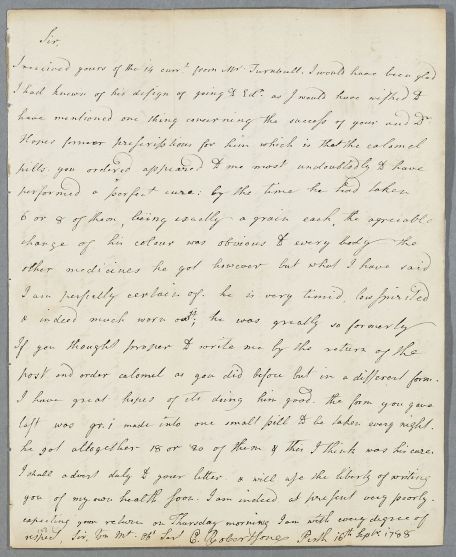 Sir,
I received yours of the 14 curr.t from Mr. Turnbull. I would have been glad
I had known of his design of going to Ed.r as I would have wished to
have mentioned one thing concerning the success of your and Dr
Hopes former prescriptions for him which is that the calomel
pills you ordered appeared to me most undoubtedly to have
performed a perfect cure: by the time he had taken
6 or 8 of them, being exactly a grain each, the agreiable
change of his colour was obvious to every body the
other medicines he got however but what I have said
I am perfectly certain of. he is very timid, low spirited
& indeed much worn out; he was greatly so formerly
If you thought proper to write me by the return of the
post and order calomel as you did before but in a different form.
I have great hopes of its doing him good. the form you gave
last was gr. i made into one small pill to be taken every night.
he got altogether 18 or 20 of them & then I think was his cure.
I shall advert duly to your letter. & will use the liberty of writing
you of my own health soon. I am indeed at present very poorly.
expecting your return on Thursday morning I am with every degree of
respect, Sir, You Mt. Obt Sert C. Robertsone Perth 16th Septr 1788